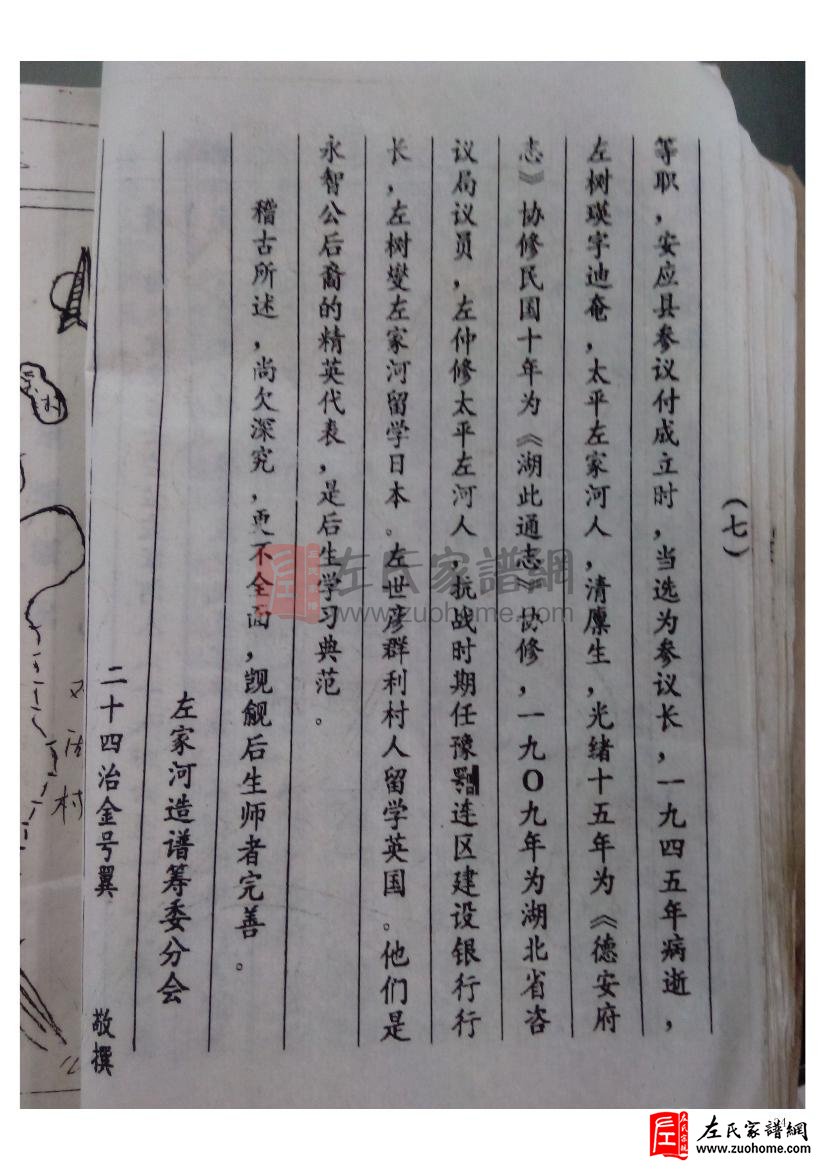 (七)
等职，安应县参议付成立时，当选为参议长，一九四五年病逝，
左树瑛字迪奄，太平左家河人，清廪生，光绪十五年为《德安府
志》协修民国十年为《湖此通志》协修，一九〇九年为湖北省咨
议局议员，左仲修太平左河人，抗战时期任豫鄂连区建设银行行
长，左树燮左家河留学日本。左世彦群利村人留学英国。他们是
永智公后裔的精英代表，是后生学习典范。
稽古所述，尚欠深究，更不全面，觊觎后生师者完善。
左家河造谱筹委分会
二十四治金号翼 敬撰
村
村
左氏家譜網
www.zuohome.com
左氏家譜網
www.zuohome.com